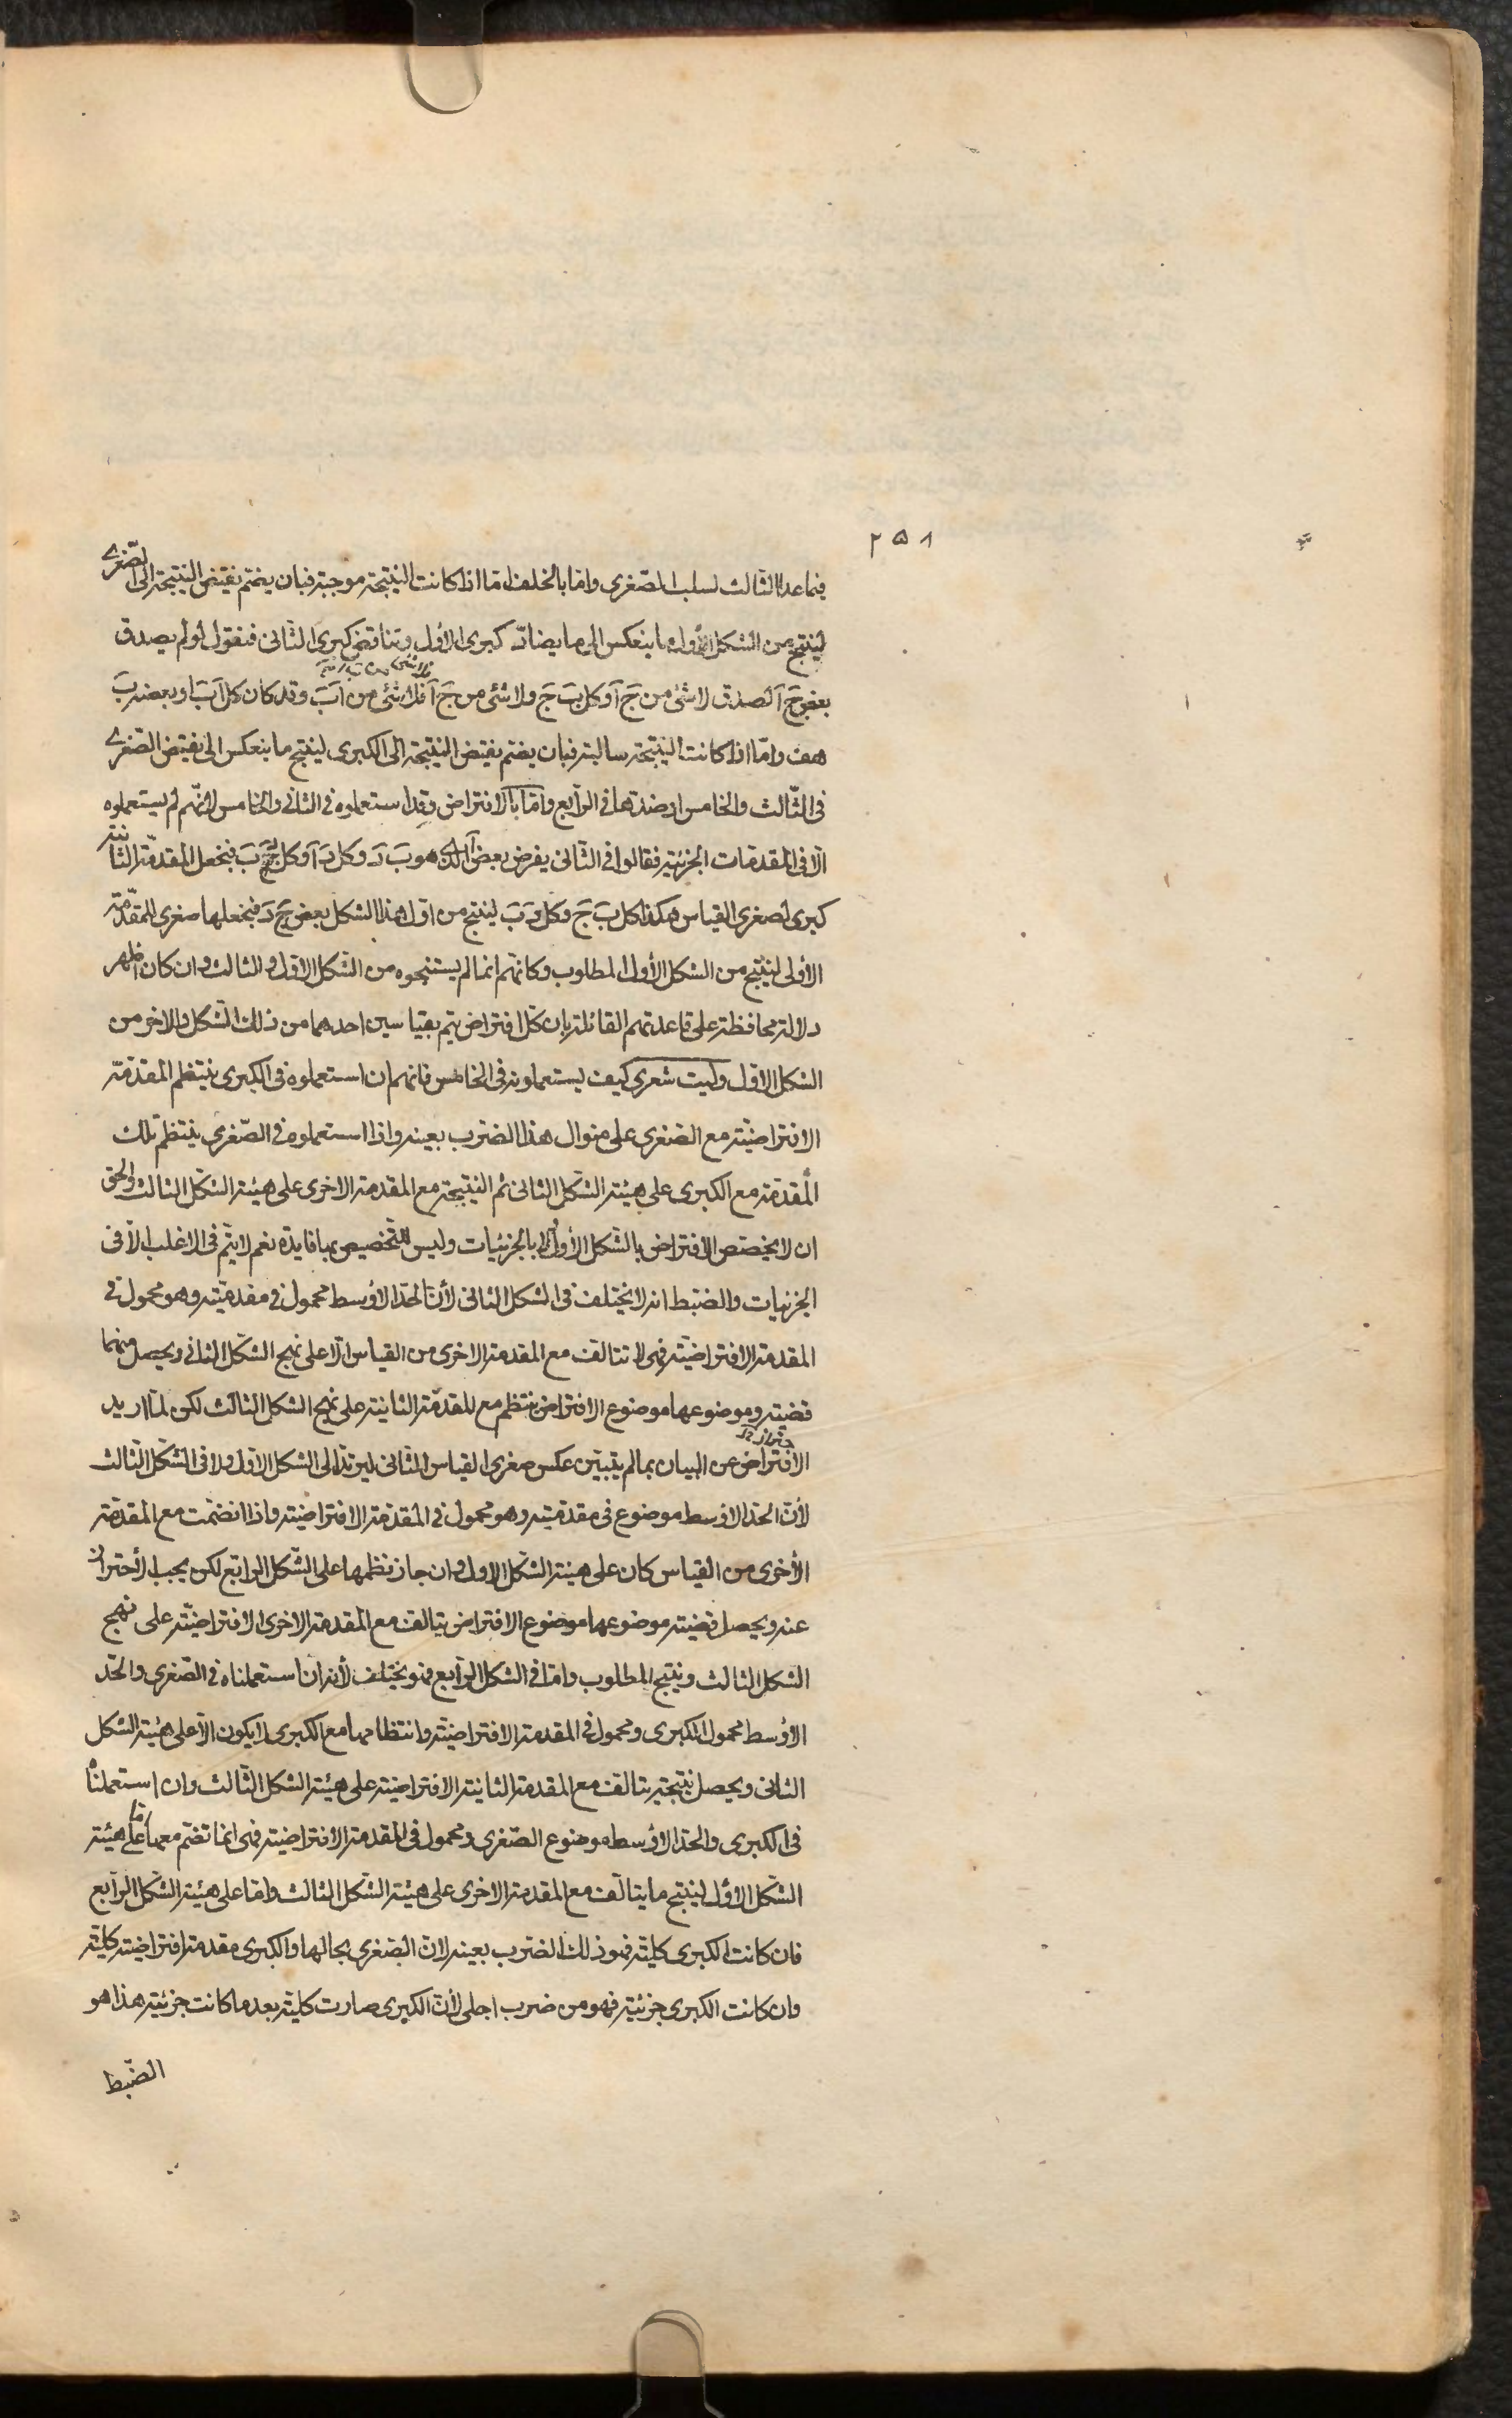 ٢٥٨
فيما عدا الثالث لسلب الصّغرى وامّا بالخلف امّا اذا كانت النتيجة موجبة فبان يضمّ نقيض النتيجة الى الصّغرى
لينتج من الشكل الأول ما ينعكس الى ما يضادّ كبرى الأول وتناقض كبرى الثانى فنقول لو لم يصدق
بعض جَ آ لصدق لا شئ من جَ آ وكل بَ جَ ولا شئ من جَ آ فلا شئ من آ بَ وقد كان كل آ بَ او بعضه بَ
هف وامّا اذا كانت النتيجة سالبة فبان يضم نقيض النتيجة الى الكبرى لينتج ما ينعكس الى نقيض الصّغرى
فى الثّالث والخامس او ضدّها فى الرّابع وامّا بالافتراض وقد استعملوه فى الثانى والخامس لانّهم لم يستعملوه
الّا فى المقدمات الجزئية فقالوا فى الثّانى يفرض بعض آ الذى هو بَ دَ وكل دَ آ وكل دَ بَ فنجعل المقدّمة الثانية
كبرى لصغرى القياس هكذا كل بَ جَ وكل دَ بَ لينتج من اوّل هذا الشكل بعض جَ دَ فنجعلها صغرى للمقدّمة
الأولى لينتج من الشكل الأول المطلوب وكانّهم انما لم يستنتجوه من الشّكل الاوّل والثالث وان كان اظهر
دلالة محافظة على قاعدتهم القائلة بان كلّ افتراض يتم بقياسين احدهما من ذلك الشّكل والاخر من
الشكل الاوّل وليت شعرى كيف يستعملونه فى الخامس فانهم ان استعملوه فى الكبرى ينتظم المقدّمة
الافتراضيّة مع الصغرى على منوال هذا الضرب بعينه واذا استعملوه فى الصّغرى ينتظم تلك
المقدّمة مع الكبرى على هيئة الشّكل الثانى ثم النتيجة مع المقدمة الاخرى على هيئة الشّكل الثالث والحق
ان لا يختصّ الافتراض بالشّكل الأول ولا بالجزئيات وليس للتخصيص بها فايدة نعم لا يتمّ فى الاغلب الّا فى
الجزئيات والضّبط انه لا يختلف فى الشكل الثانى لأنّ الحدّ الأوسط محمول فى مقدمتيه وهو محمول فى
المقدمة الافتراضيّة فهى لا تتالف مع المقدمة الاخرى من القياس الّا على نهج الشّكل الثانى ويحصل منهما
قضيّة وموضوعها موضوع الافتراض ينتظم مع المقدّمة الثانية على نهج الشكل الثالث لكن لمّا اريد
الافتراض عن البيان بما لم يتبيّن عكس صغرى القياس الثّانى ليرتدّ الى الشكل الاوّل ولا فى الشّكل الثّالث
لأنّ الحدّ الاوسط موضوع فى مقدمتيه وهو محمول فى المقدّمة الافتراضيّة واذا انضمّت مع المقدّمة
الأخرى من القياس كان على هيئة الشكل الاول وان جاز نظمها على الشّكل الرابع لكن يجب الأحتراز
عنه ويحصل قضيّة موضوعها موضوع الافتراض يتالف مع المقدمة الاخرى الافتراضيّة على نهج
الشكل الثالث وينتج المطلوب وامّا فى الشكل الرّابع فهو يختلف لأنه ان استعملناه فى الصّغرى والحدّ
الأوسط محمول الكبرى ومحمول فى المقدمة الافتراضيّة وانتظامها مع الكبرى لا يكون الّا على هيئة الشكل
الثانى ويحصل نتيجة يتالف مع المقدمة الثانية الافتراضيّة على هيئة الشكل الثّالث وان استعملناه
فى الكبرى والحدّ الاوسط موضوع الصّغرى ومحمول فى المقدمة الافتراضيّة فهى انما تضمّ معها امّا على هيئة
الشّكل الأوّل لينتج ما يتالّف مع المقدمة الاخرى على هيئة الشّكل الثالث وامّا على هيئة الشّكل الرّابع
فان كانت الكبرى كليّة فهو ذلك الضرب بعينه لانّ الصّغرى بحالها والكبرى مقدمة افتراضيّة كليّة
وان كانت الكبرى جزئيّة فهو من ضرب اجلى لأنّ الكبرى صارت كليّة بعد ما كانت جزئيّة هذا هو
الضّبط